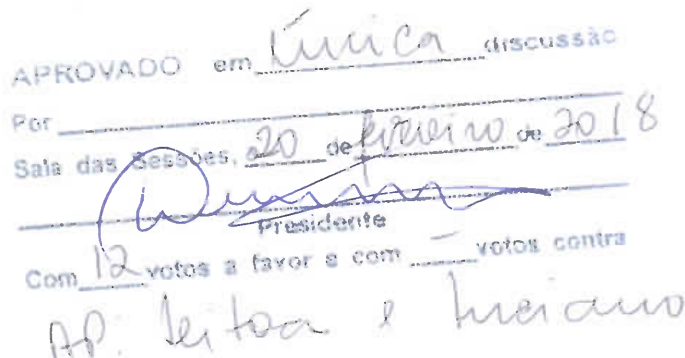 APROVADO em Única discussão
Por
Sala das Sessões, 20 de fevereiro de 2018
Presidente
Com 12 votos a favor e com — votos contra
AP. e Luciano